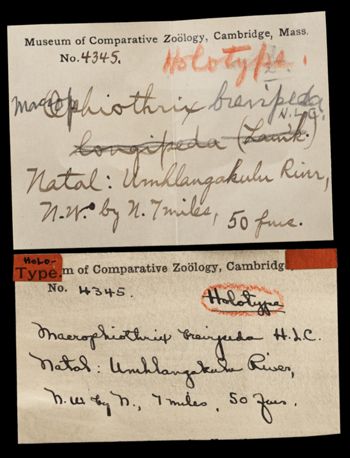 Museum of Comparative Zoölogy, Cambridge, Mass.
No. 4345. Holotype.
Macrophiothrix brevipeda
H.L.C.
longipeda (Lamk.)
Natal: Umhlangakulu River,
N.W. by N. 7 miles, 50 fms.
Holo-
Type. m of Comparative Zoölogy, Cambridg
No. 4345.
Holotype
Macrophiothrix brevipeda H.L.C.
Natal: Umhlangakulu River,
N.W by N., 7 miles, 50 fms.